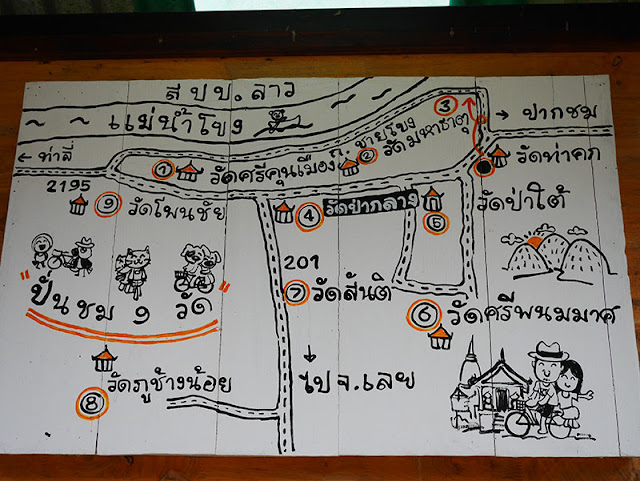 ส ป ป. ลาว
แม่น้ำโขง
← ท่าลี่
→ ปากชม
2195
① วัดศรีคุนเมือง
ถ. ชายโขง
② วัดมหาธาตุ
③
วัดท่าคก
⑨ วัดโพนชัย
④ วัดป่ากลาง
⑤
วัดป่าใต้
201
⑦ วัดสันติ
⑥ วัดศรีพนมมาศ
"ปั่นชม 9 วัด"
วัดภูช้างน้อย
⑧
↓
ไป จ.เลย